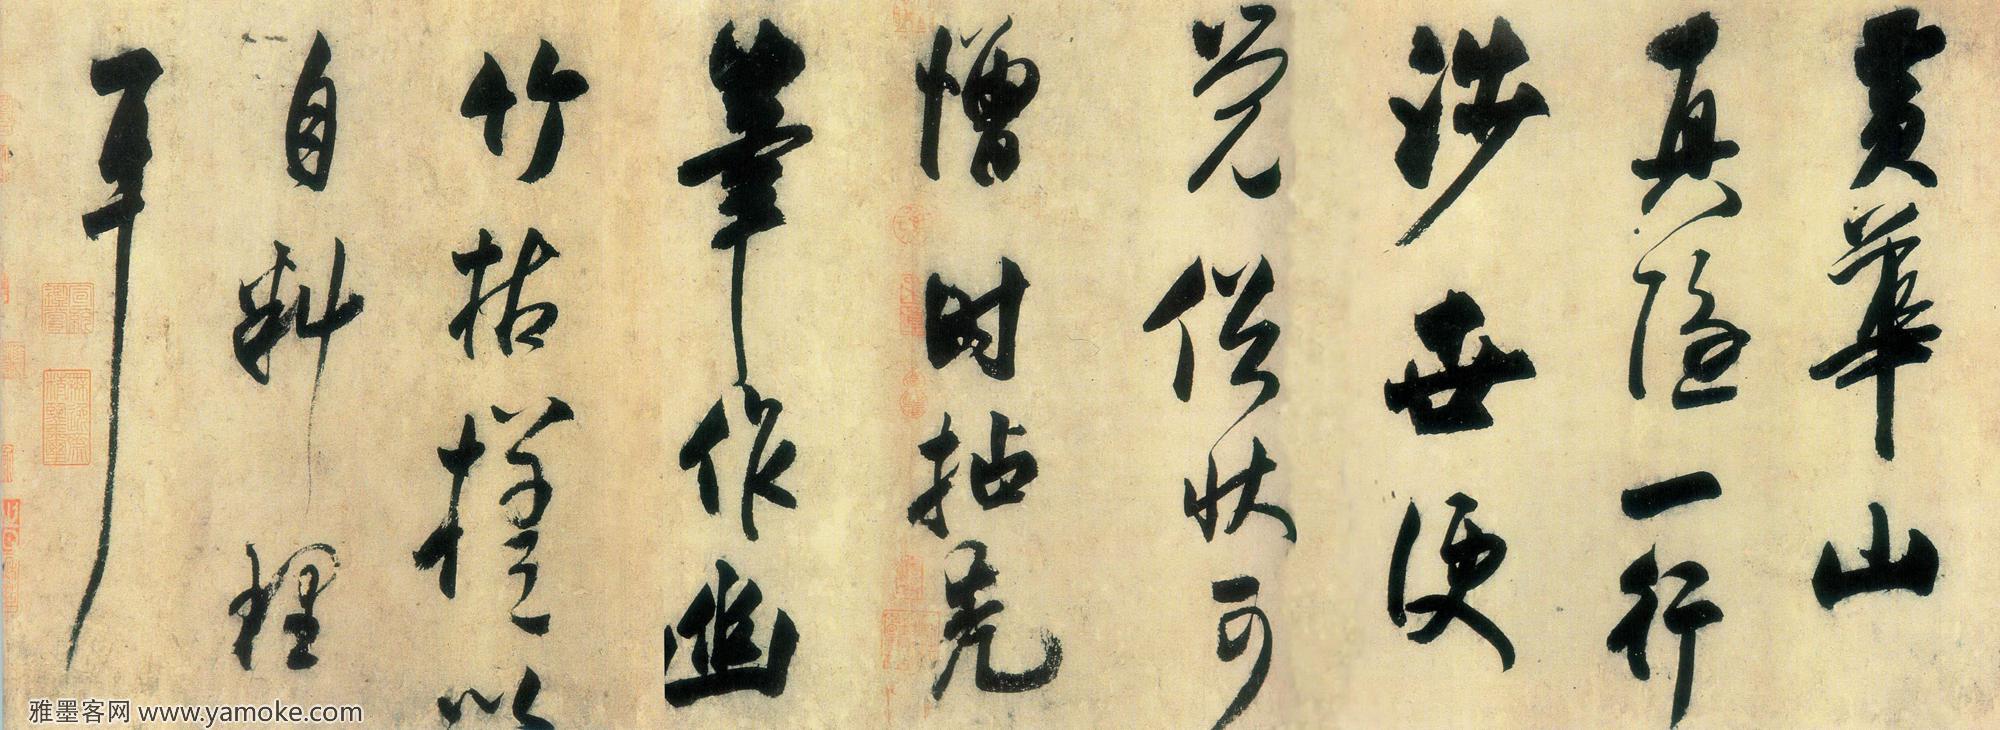 黄華山
真隱一行
涉世便
覺俗狀可
憎時拈禿
筆作幽
竹枯槎以
自料理
耳
雅墨客网 www.yamoke.com